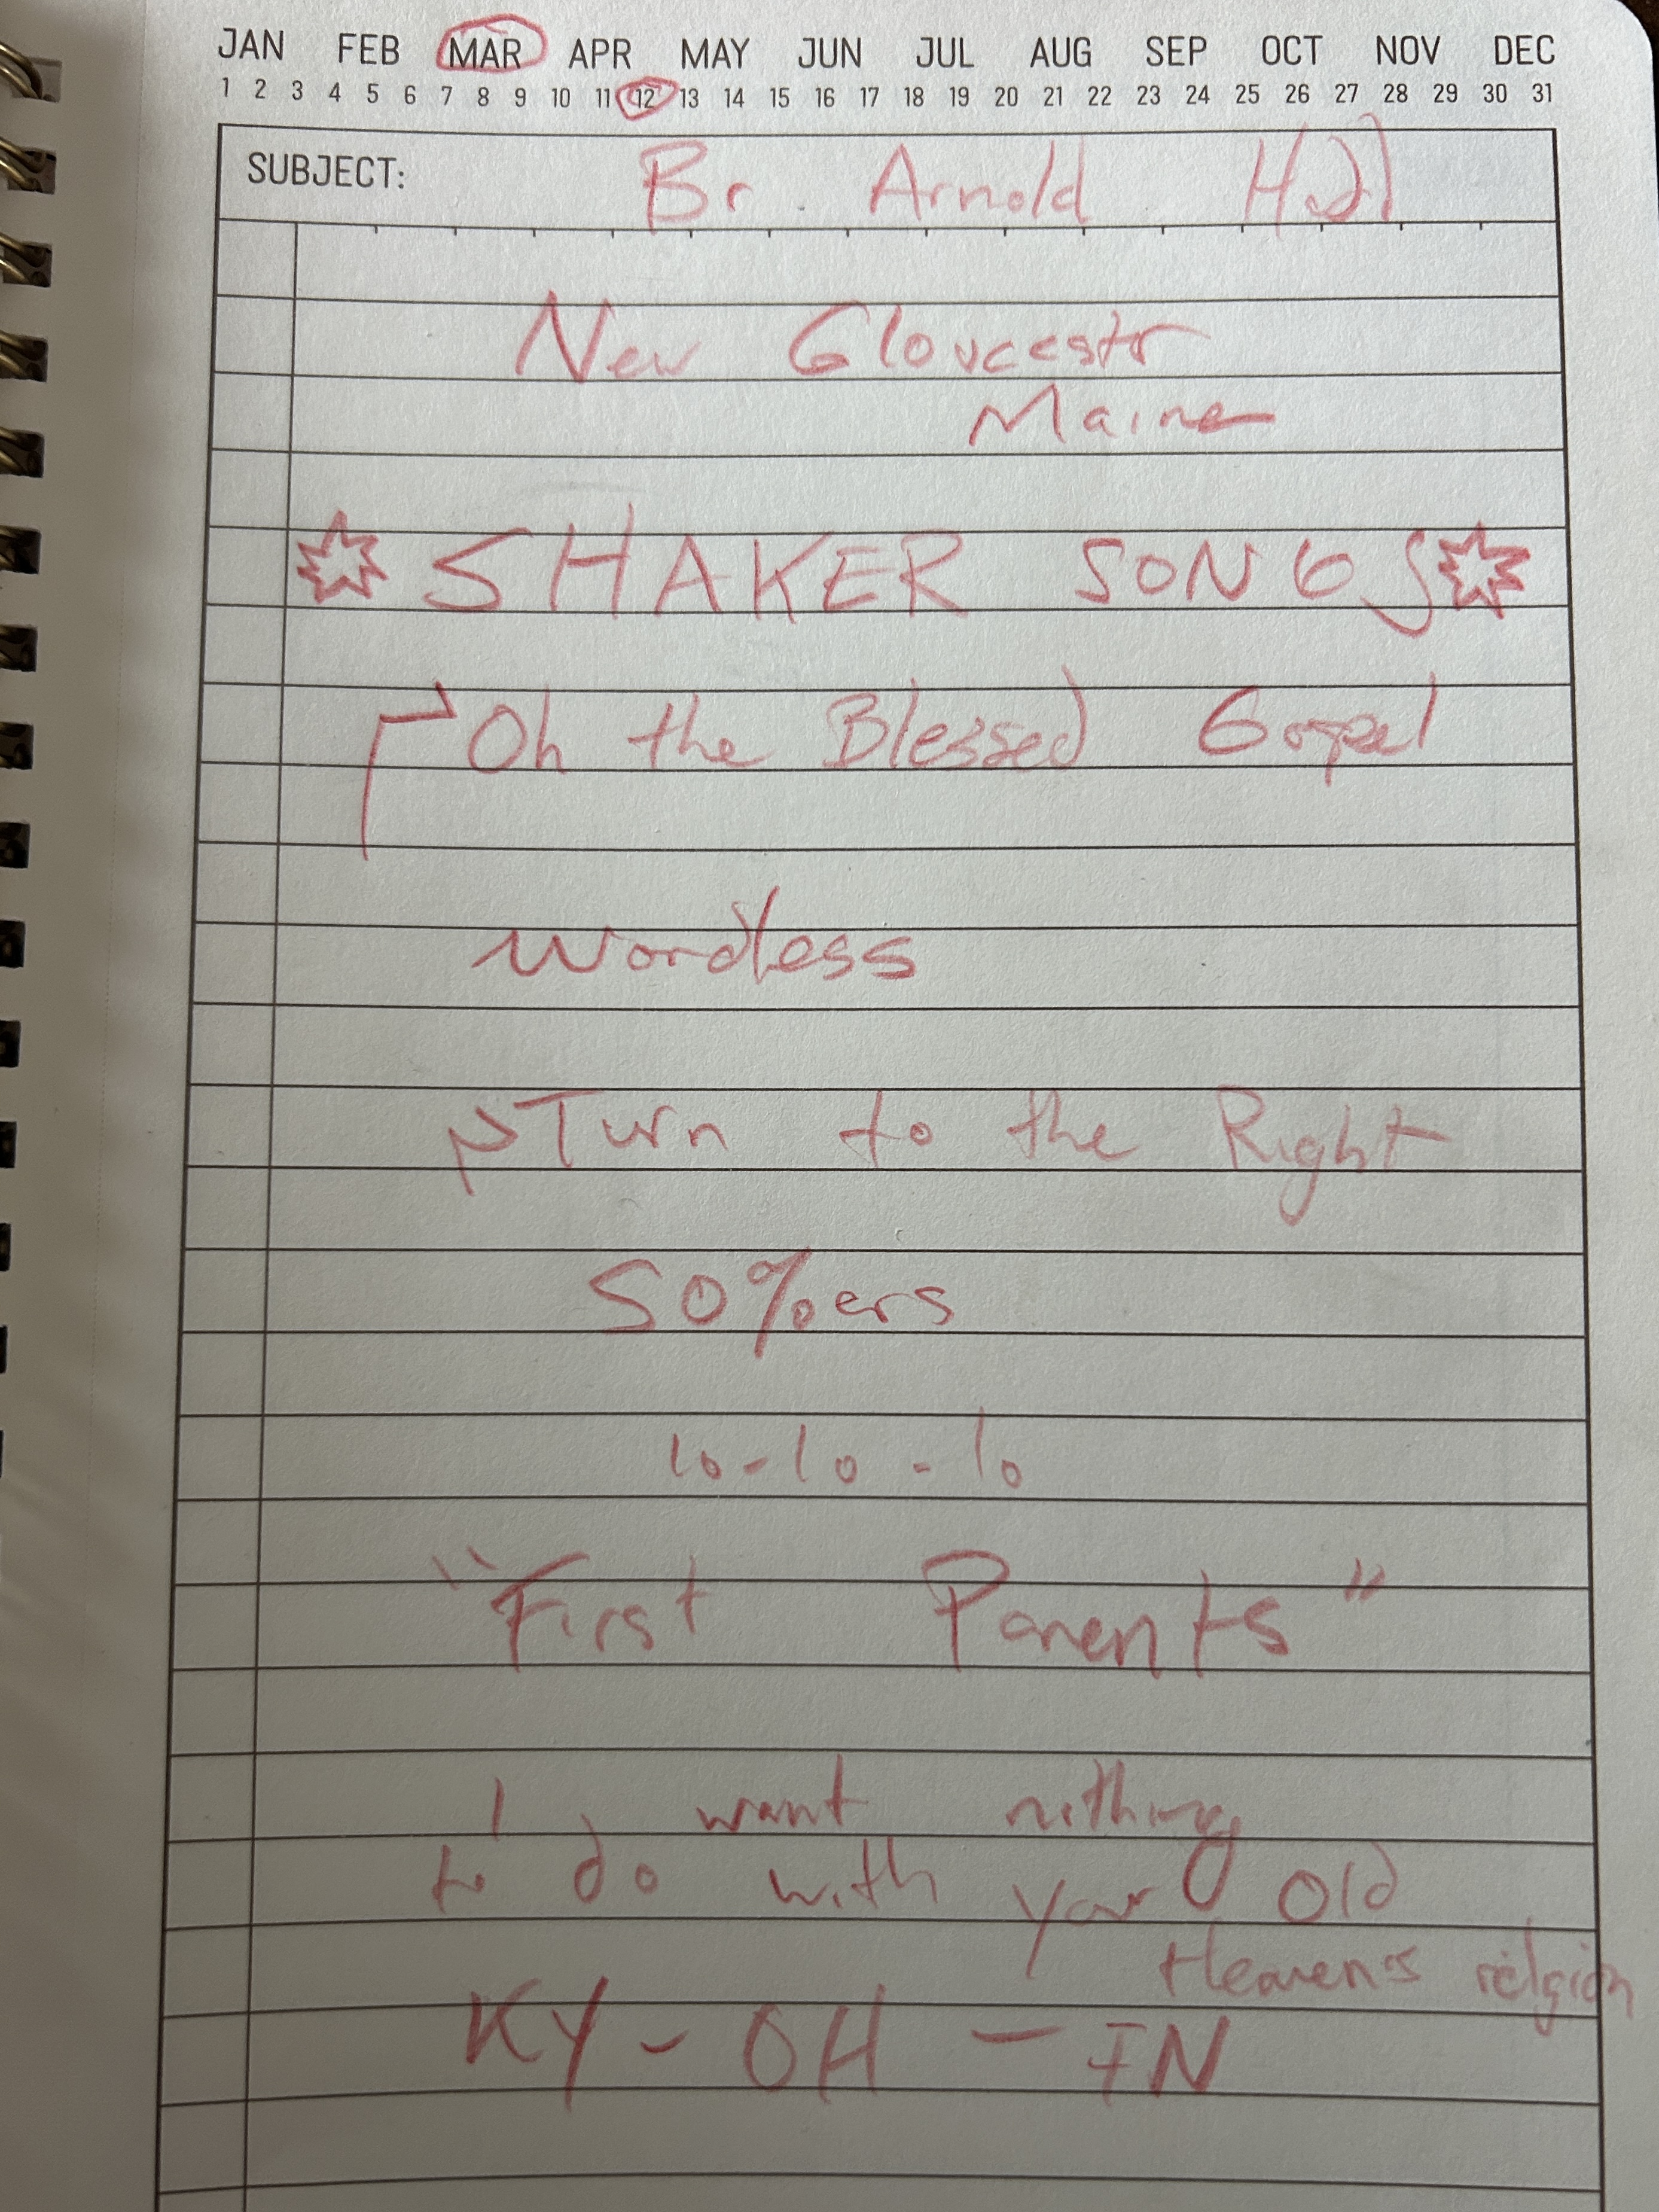 JAN FEB MAR APR MAY JUN JUL AUG SEP OCT NOV DEC
1 2 3 4 5 6 7 8 9 10 11 12 13 14 15 16 17 18 19 20 21 22 23 24 25 26 27 28 29 30 31
SUBJECT: Br. Arnold
New Gloucestr
Maine
SHAKER SONGS
Oh the Blessed Gospel
Wordless
Turn to the Right
50%ers
lo-lo-lo
"First Parents"
I want nithing
to do with your Old
Heaven's religion
KY - OH - IN